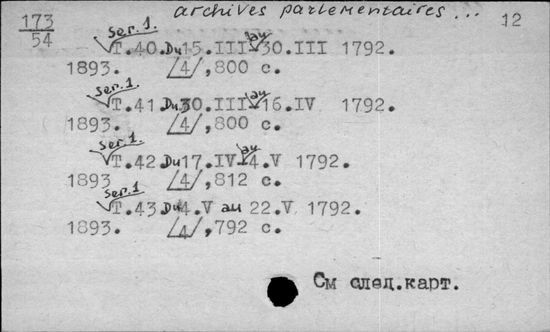 archives parlementaires ...
173
54
12
Ser. 1.
√T.40.Du 15.III au 30.III 1792.
1893. /4/,800 с.
Ser. 1
√T.41.Du 30.III au 16.IV 1792.
1893. /4/,800 с.
Ser. 1.
√T.42.Du 17.IV au 4.V 1792.
1893 /4/,812 с.
Ser. 1
√T.43.Du 4.V au 22.V 1792.
1893. /4/,792 с.
См след.карт.